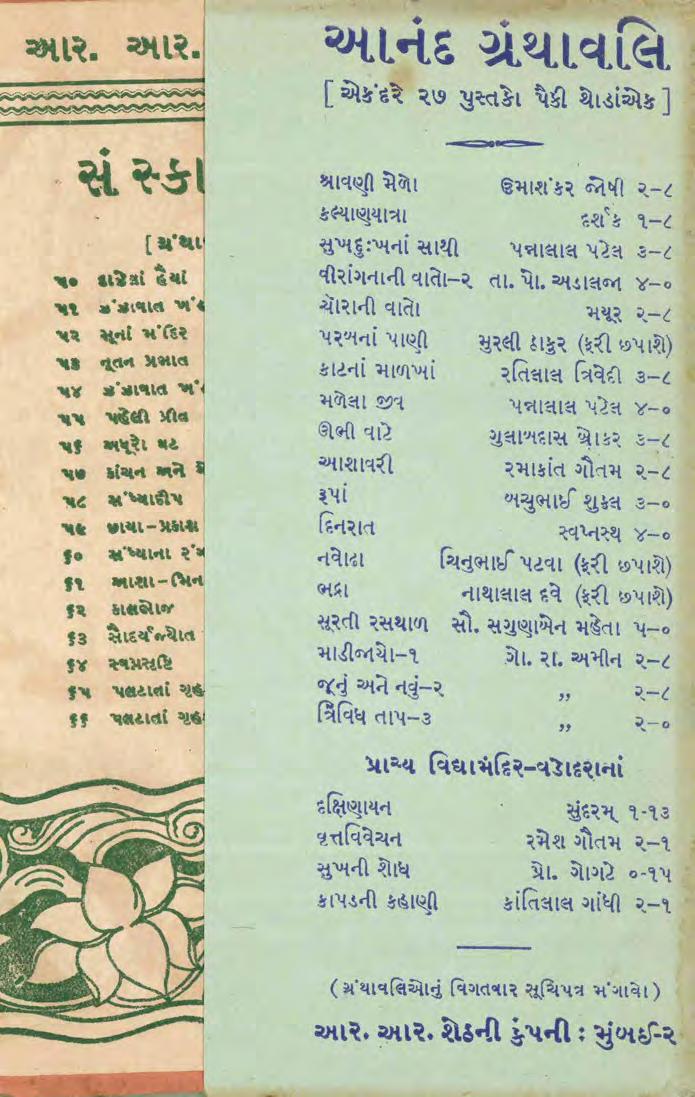 આર. આર.
સંસ્કા
[ ગ્રંથા
૫૦ દાઝેલાં હૈયાં
૫૧ ઝંઝાવાત ખં
૫૨ સૂનાં મંદિર
૫૩ નૂતન પ્રભાત
૫૪ ઝંઝાવાત ખં
૫૫ પહેલી પ્રીત
૫૬ અધૂરો ઘટ
૫૭ કાંચન અને
૫૮ સંધ્યાદીપ
૫૯ છાયા-પ્રકાશ
૬૦ સંધ્યાના રંગ
૬૧ આશા-મિન
૬૨ કાલભોજ
૬૩ સૌંદર્યજ્યોત
૬૪ સ્વપ્નસૃષ્ટિ
૬૫ પલટાતાં ગૃહ
૬૬ પલટાતાં ગૃહ
આનંદ ગ્રંથાવલિ
[ એકંદરે ૨૭ પુસ્તકો પૈકી થોડાંએક ]
શ્રાવણી મેળો ઉમાશંકર જોષી ૨-૮
કલ્યાણયાત્રા દર્શક ૧-૮
સુખદુઃખનાં સાથી પન્નાલાલ પટેલ ૩-૮
વીરાંગનાની વાતો-૨ તા. પો. અડાલજા ૪-૦
ચોરાની વાતો મયૂર ૨-૮
પરબનાં પાણી મુરલી ઠાકુર (ફરી છપાશે)
કાટનાં માળખાં રતિલાલ ત્રિવેદી ૩-૮
મળેલા જીવ પન્નાલાલ પટેલ ૪-૦
ઊભી વાટે ગુલાબદાસ બ્રોકર ૩-૮
આશાવરી રમાકાંત ગૌતમ ૨-૮
રૂપાં બચુભાઈ શુકલ ૩-૦
દિનરાત સ્વપ્નસ્થ ૪-૦
નવોઢા ચિનુભાઈ પટવા (ફરી છપાશે)
ભદ્રા નાથાલાલ દવે (ફરી છપાશે)
સૂરતી રસથાળ સૌ. સગુણાબેન મહેતા ૫-૦
માડીજાયો-૧ ગો. રા. અમીન ૨-૮
જૂનું અને નવું-૨ ,, ૨-૮
ત્રિવિધ તાપ-૩ ,, ૨-૦
પ્રાચ્ય વિદ્યામંદિર-વડોદરાનાં
દક્ષિણાયન સુંદરમ્ ૧-૧૩
વૃત્તવિવેચન રમેશ ગૌતમ ૨-૧
સુખની શોધ પ્રો. ગોગટે ૦-૧૫
કાપડની કહાણી કાંતિલાલ ગાંધી ૨-૧
( ગ્રંથાવલિઓનું વિગતવાર સૂચિપત્ર મંગાવો )
આર. આર. શેઠની કંપની : મુંબઈ-૨